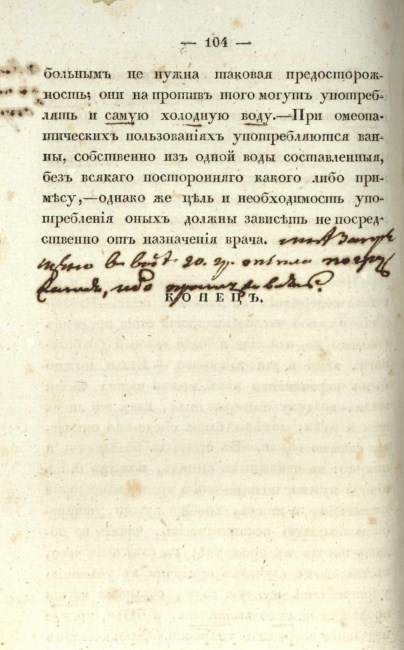 — 104 —
больнымъ не нужна таковая предосторож-
ность; они на противъ того могутъ употреб-
лять и самую холодную воду.—При омеопа-
тическихъ пользованіяхъ употребляются ван-
ны, собственно изъ одной воды составленныя,
безъ всякаго посторонняго какого либо при-
мѣсу,—однако же цѣль и необходимость упо-
требленія оныхъ должны зависѣть не посред-
ственно отъ назначенія врача.
20.
КОНЕЦЪ.